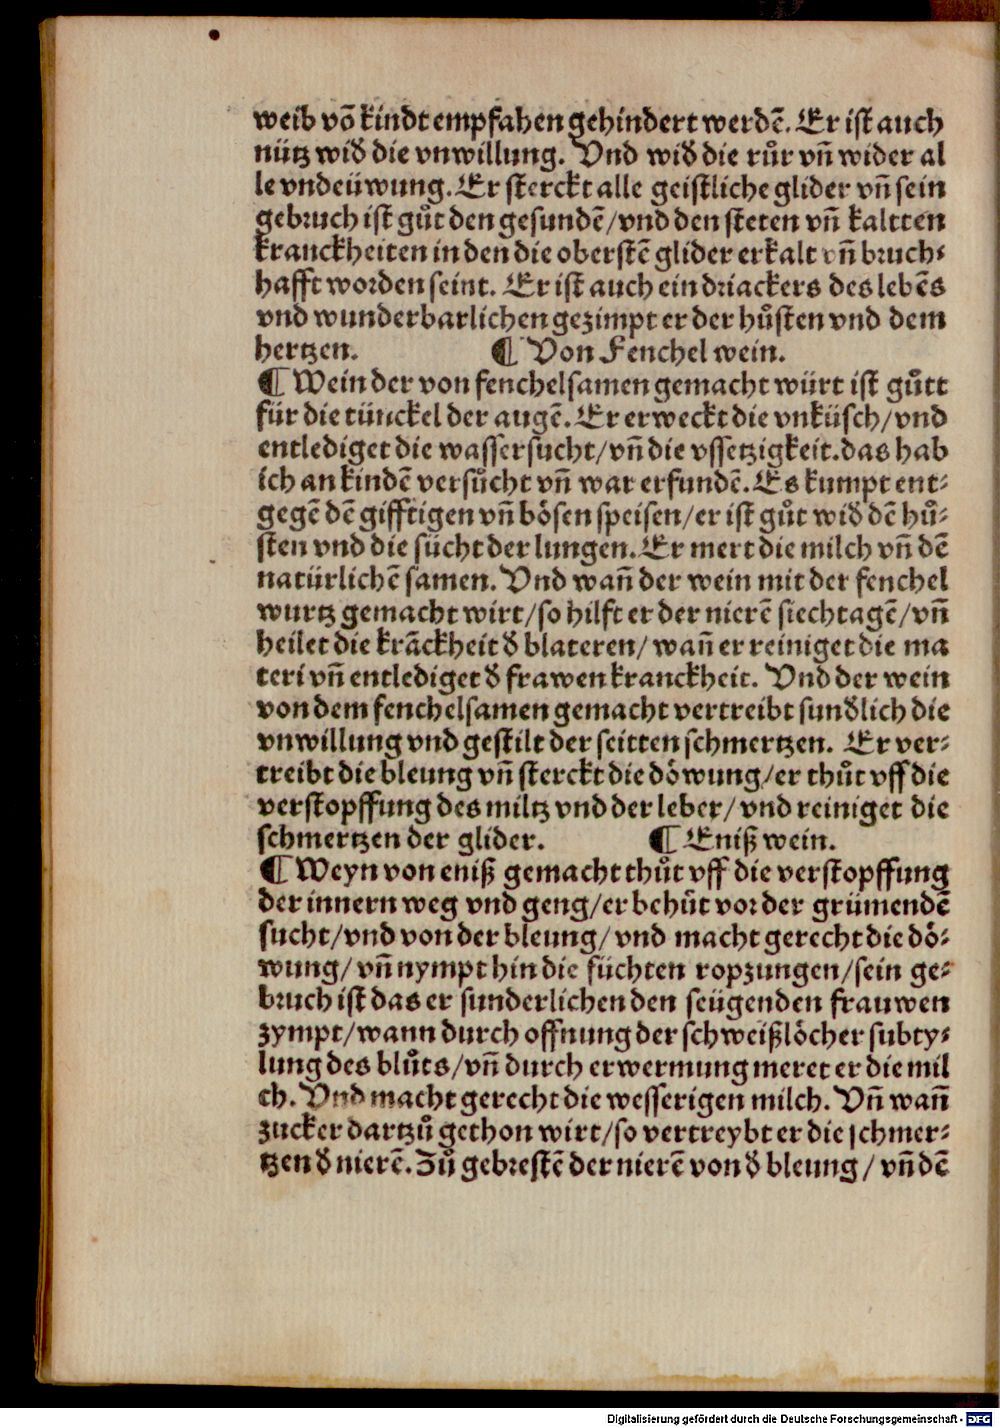 weib võ kindt empfahen gehindert werdē. Er ist auch
nütz wid̛ die vnwillung. Vnd wid̛ die růr vñ wider al
le vndeüwung. Er sterckt alle geistliche glider vñ sein
gebruch ist gůt den gesundē/vnd den steten vñ kaltten
kranckheiten in den die oberstē glider erkalt vñ bruch⸗
hafft worden seint. Er ist auch ein driackers des lebēs
vnd wunderbarlichen gezimpt er der hůsten vnd dem
hertzen. ¶ Von Fenchel wein.
¶ Wein der von fenchelsamen gemacht würt ist gůtt
für die tünckel der augē. Er erweckt die vnküsch/vnd
entlediget die wassersucht/vñ die vssetzigkeit.das hab
ich an kindē versůcht vñ war erfundē. Es kumpt ent⸗
gegē dē gifftigen vñ bösen speisen/er ist gůt wid̛ dē hů⸗
sten vnd die sücht der lungen. Er mert die milch vñ dē
natürlichē samen. Vnd wañ der wein mit der fenchel
wurtz gemacht wirt/so hilft er der nierē siechtagē/vñ
heilet die krāckheit d̛ blateren/ wañ er reiniget die ma
teri vñ entlediget d̛ frawen kranckheit. Vnd der wein
von dem fenchelsamen gemacht vertreibt sund̛lich die
vnwillung vnd gestilt der seitten schmertzen. Er ver⸗
treibt die bleung vñ sterckt die döwung/er thůt vff die
verstopffung des miltz vnd der leber/ vnd reiniget die
schmertzen der glider. ¶ Eniß wein.
¶ Weyn von eniß gemacht thůt vff die verstopffung
der innern weg vnd geng/er behůt vor der grümendē
sucht/vnd von der bleung/ vnd macht gerecht die dö⸗
wung/ vñ nympt hin die füchten ropzungen/sein ge⸗
bruch ist das er sunderlichen den seügenden frauwen
zympt/wann durch offnung der schweißlöcher subty⸗
lung des blůts/vñ durch erwermung meret er die mil
ch. Vnd macht gerecht die wesserigen milch. Vñ wañ
zucker dartzů gethon wirt/so vertreybt er die schmer⸗
tzen d̛ nierē. Zů gebrestē der nierē von d̛ bleung/ vñ dē
Digitalisierung gefördert durch die Deutsche Forschungsgemeinschaft - DFG